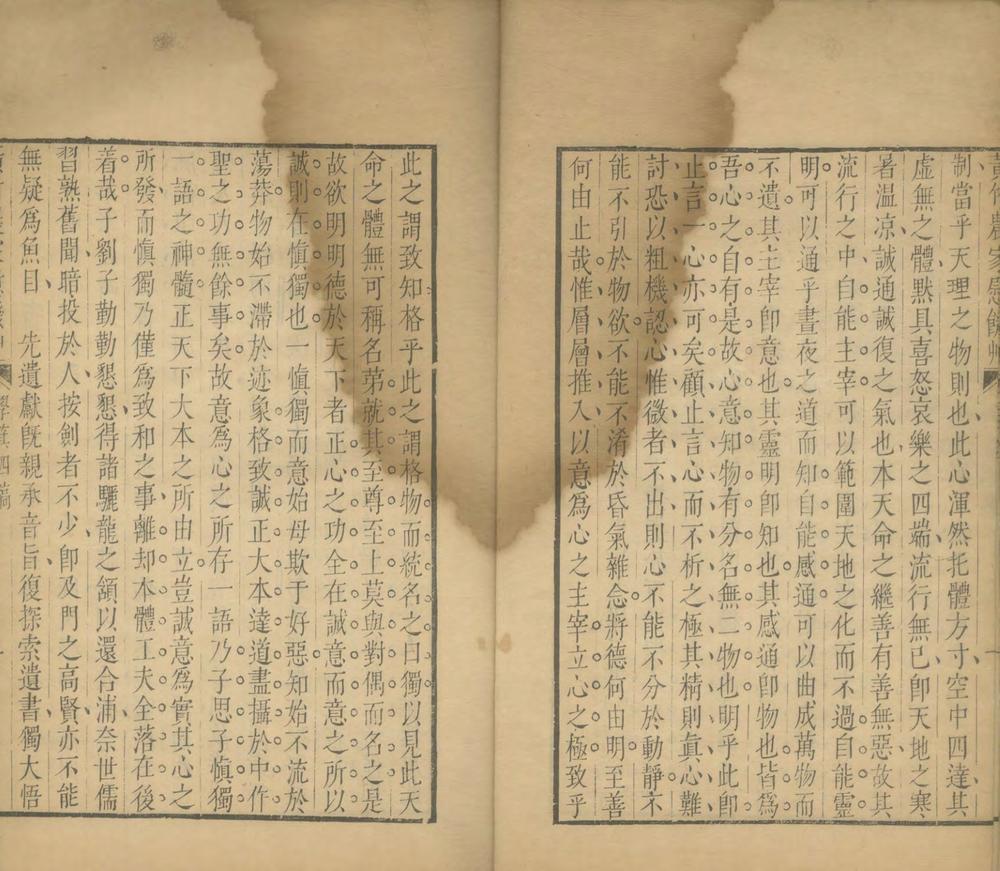 黃竹農家慰餓艸
制當乎天理之物則也此心渾然托體方寸空中四達其
虛無之體黙具喜怒哀樂之四端流行無已卽天地之寒
暑温凉誠通誠復之氣也本天命之繼善有善無惡故其
流行之中自能主宰可以範圍天地之化而不過自能靈
明可以通乎晝夜之道而知自能感通可以曲成萬物而
不遺其主宰卽意也其靈明卽知也其感通卽物也皆爲
吾心之自有是故心意知物有分名無二物也明乎此卽
止言一心亦可矣顧止言心而不析之極其精則眞心難
討恐以粗機認心惟微者不出則心不能不分於動靜不
能不引於物欲不能不淆於昏氣雜念將德何由明至善
何由止哉惟層層推入以意爲心之主宰立心之極致乎
此之謂致知格乎此之謂格物而統名之曰獨以見此天
命之體無可稱名苐就其至尊至上莫與對偶而名之是
故欲明明德於天下者正心之功全在誠意而意之所以
誠則在愼獨也一愼獨而意始毋欺于好惡知始不流於
蕩莽物始不滯於迹象格致誠正大本達道盡攝於中作
聖之功無餘事矣故意爲心之所存一語乃子思子愼獨
一語之神髓正天下大本之所由立豈誠意爲實其心之
所發而愼獨乃僅爲致和之事離却本體工夫全落在後
着哉子劉子勤勤懇懇得諸驪龍之頷以還合浦奈世儒
習熟舊聞暗投於人按劍者不少卽及門之高賢亦不能
無疑爲魚目　先遺獻旣親承音旨復探索遺書獨大悟